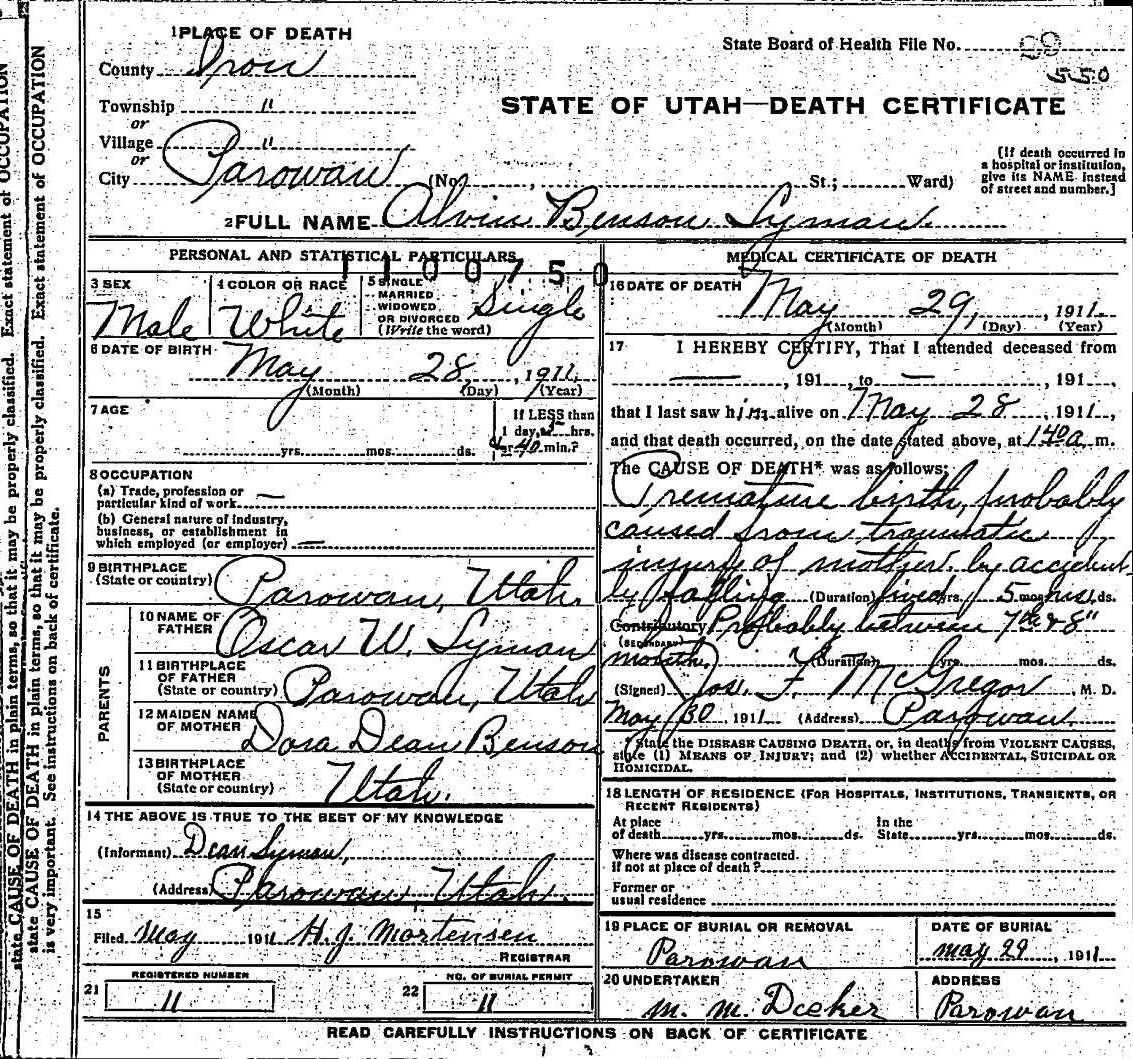 state CAUSE OF DEATH in plain terms, so that it may be properly classified. Exact statement of OCCUPATION
state CAUSE OF DEATH in plain terms, so that it may be properly classified. Exact statement of OCCUPATION
is very important. See instructions on back of certificate.
1 PLACE OF DEATH
State Board of Health File No. 59
550
County Iron
STATE OF UTAH—DEATH CERTIFICATE
Township "
or
Village "
or
City Parowan (No. , St.; Ward)
[If death occurred in
a hospital or institution,
give its NAME instead
of street and number.]
2 FULL NAME Alvin Benson Lyman
PERSONAL AND STATISTICAL PARTICULARS
1100750
3 SEX
Male
4 COLOR OR RACE
White
5 SINGLE
MARRIED
WIDOWED
OR DIVORCED
(Write the word)
Single
6 DATE OF BIRTH
May 28, 1911
(Month) (Day) (Year)
7 AGE
yrs. mos. ds.
If LESS than
1 day, hrs.
or 40 min.?
8 OCCUPATION
(a) Trade, profession or
particular kind of work —
(b) General nature of industry,
business, or establishment in
which employed (or employer) —
9 BIRTHPLACE
(State or country) Parowan, Utah.
PARENTS
10 NAME OF
FATHER Oscar W. Lyman
11 BIRTHPLACE
OF FATHER
(State or country) Parowan, Utah
12 MAIDEN NAME
OF MOTHER Dora Dean Benson
13 BIRTHPLACE
OF MOTHER
(State or country) Utah.
14 THE ABOVE IS TRUE TO THE BEST OF MY KNOWLEDGE
(Informant) Dean Lyman,
(Address) Parowan, Utah.
15
Filed May 1911 H. J. Mortensen
REGISTRAR
21 REGISTERED NUMBER
11
22 NO. OF BURIAL PERMIT
11
MEDICAL CERTIFICATE OF DEATH
16 DATE OF DEATH
May 29, 1911
(Month) (Day) (Year)
17 I HEREBY CERTIFY, That I attended deceased from
— , 191 , to — , 191 ,
that I last saw him alive on May 28, 1911,
and that death occurred, on the date stated above, at 1 40 a m.
The CAUSE OF DEATH* was as follows:
Premature birth, probably
caused from traumatic
injury of mother. by accident
ly falling (Duration) lived yrs. 5 mos. hrs. ds.
Contributory Probably between 7th & 8"
(SECONDARY)
month. (Duration) yrs. mos. ds.
(Signed) Jos. F. McGregor, M. D.
May 30 1911 (Address) Parowan.
*State the DISEASE CAUSING DEATH, or, in deaths from VIOLENT CAUSES,
state (1) MEANS OF INJURY; and (2) whether ACCIDENTAL, SUICIDAL OR
HOMICIDAL.
18 LENGTH OF RESIDENCE (FOR HOSPITALS, INSTITUTIONS, TRANSIENTS, OR
RECENT RESIDENTS)
At place
of death yrs. mos. ds.
In the
State yrs. mos. ds.
Where was disease contracted.
If not at place of death?
Former or
usual residence
19 PLACE OF BURIAL OR REMOVAL
Parowan
DATE OF BURIAL
May 29, 1911
20 UNDERTAKER
M. M. Decker
ADDRESS
Parowan
READ CAREFULLY INSTRUCTIONS ON BACK OF CERTIFICATE